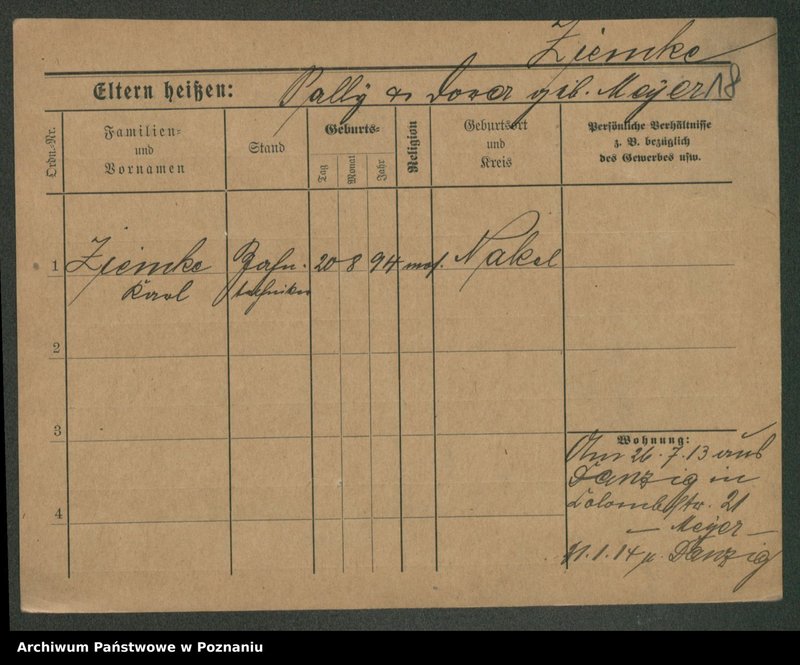 Ziemke
Eltern heißen: Rally u Dora geb. Meyer 18
Ordn.-Nr.
Familien-
und
Vornamen
Stand
Geburts-
Tag
Monat
Jahr
Religion
Geburtsort
und
Kreis
Persönliche Verhältnisse
z. B. bezüglich
des Gewerbes usw.
1 Ziemke Zahn- 20 8 94 mos. Nakel
Karl techniker
2
3
4
Wohnung:
Am 26.7.13 aus
Danzig in
Colombstr. 21
— Meyer —
11.1.14 n. Danzig
Archiwum Państwowe w Poznaniu